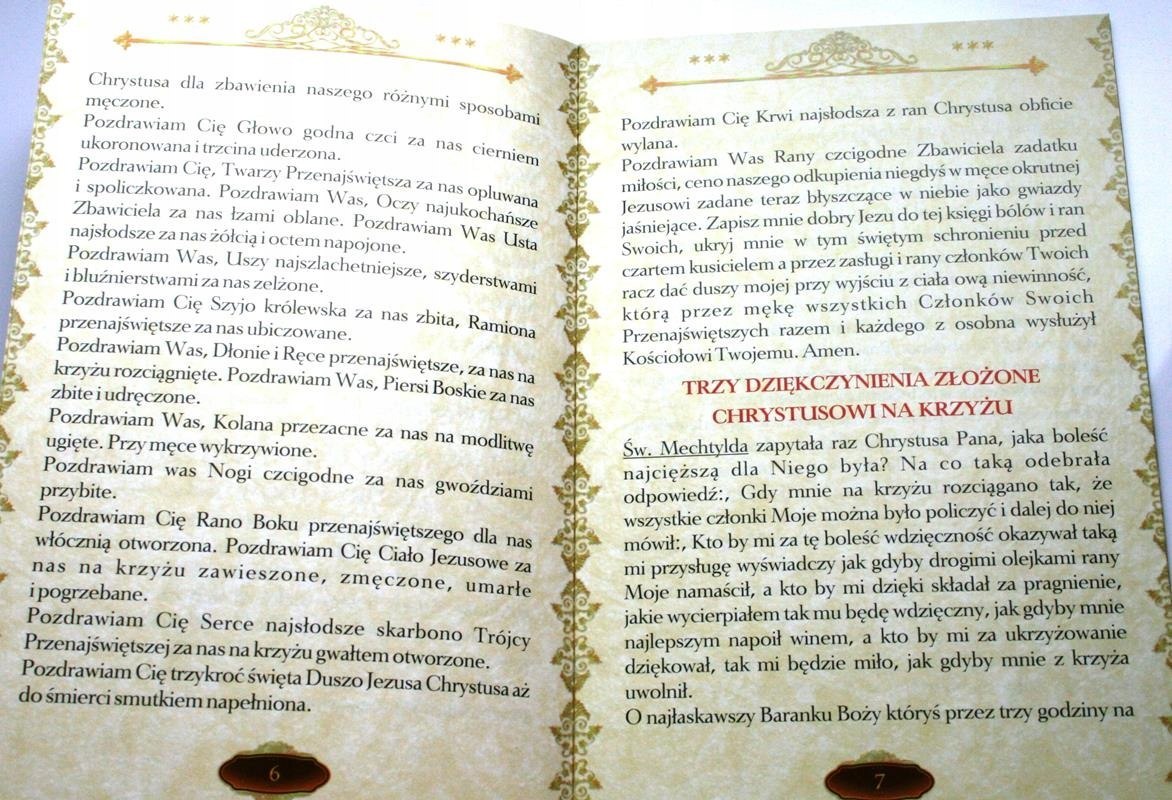 ***
***
Chrystusa dla zbawienia naszego różnymi sposobami
męczone.
Pozdrawiam Cię Głowo godna czci za nas cierniem
ukoronowana i trzcina uderzona.
Pozdrawiam Cię, Twarzy Przenajświętsza za nas opluwana
i spoliczkowana. Pozdrawiam Was, Oczy najukochańsze
Zbawiciela za nas łzami oblane. Pozdrawiam Was Usta
najsłodsze za nas żółcią i octem napojone.
Pozdrawiam Was, Uszy najszlachetniejsze, szyderstwami
i bluźnierstwami za nas zelżone.
Pozdrawiam Cię Szyjo królewska za nas zbita, Ramiona
przenajświętsze za nas ubiczowane.
Pozdrawiam Was, Dłonie i Ręce przenajświętsze, za nas na
krzyżu rozciągnięte. Pozdrawiam Was, Piersi Boskie za nas
zbite i udręczone.
Pozdrawiam Was, Kolana przezacne za nas na modlitwę
ugięte. Przy męce wykrzywione.
Pozdrawiam was Nogi czcigodne za nas gwoździami
przybite.
Pozdrawiam Cię Rano Boku przenajświętszego dla nas
włócznią otworzona. Pozdrawiam Cię Ciało Jezusowe za
nas na krzyżu zawieszone, zmęczone, umarłe
i pogrzebane.
Pozdrawiam Cię Serce najsłodsze skarbono Trójcy
Przenajświętszej za nas na krzyżu gwałtem otworzone.
Pozdrawiam Cię trzykroć święta Duszo Jezusa Chrystusa aż
do śmierci smutkiem napełniona.
6
***
***
Pozdrawiam Cię Krwi najsłodsza z ran Chrystusa obficie
wylana.
Pozdrawiam Was Rany czcigodne Zbawiciela zadatku
miłości, ceno naszego odkupienia niegdyś w męce okrutnej
Jezusowi zadane teraz błyszczące w niebie jako gwiazdy
jaśniejące. Zapisz mnie dobry Jezu do tej księgi bólów i ran
Swoich, ukryj mnie w tym świętym schronieniu przed
czartem kusicielem a przez zasługi i rany członków Twoich
racz dać duszy mojej przy wyjściu z ciała ową niewinność,
którą przez mękę wszystkich Członków Swoich
Przenajświętszych razem i każdego z osobna wysłużył
Kościołowi Twojemu. Amen.
TRZY DZIĘKCZYNIENIA ZŁOŻONE
CHRYSTUSOWI NA KRZYŻU
Św. Mechtylda zapytała raz Chrystusa Pana, jaka boleść
najcięższą dla Niego była? Na co taką odebrała
odpowiedź:, Gdy mnie na krzyżu rozciągano tak, że
wszystkie członki Moje można było policzyć i dalej do niej
mówił:, Kto by mi za tę boleść wdzięczność okazywał taką
mi przysługę wyświadczy jak gdyby drogimi olejkami rany
Moje namaścił, a kto by mi dzięki składał za pragnienie,
jakie wycierpiałem tak mu będę wdzięczny, jak gdyby mnie
najlepszym napoił winem, a kto by mi za ukrzyżowanie
dziękował, tak mi będzie miło, jak gdyby mnie z krzyża
uwolnił.
O najłaskawszy Baranku Boży któryś przez trzy godziny na
7